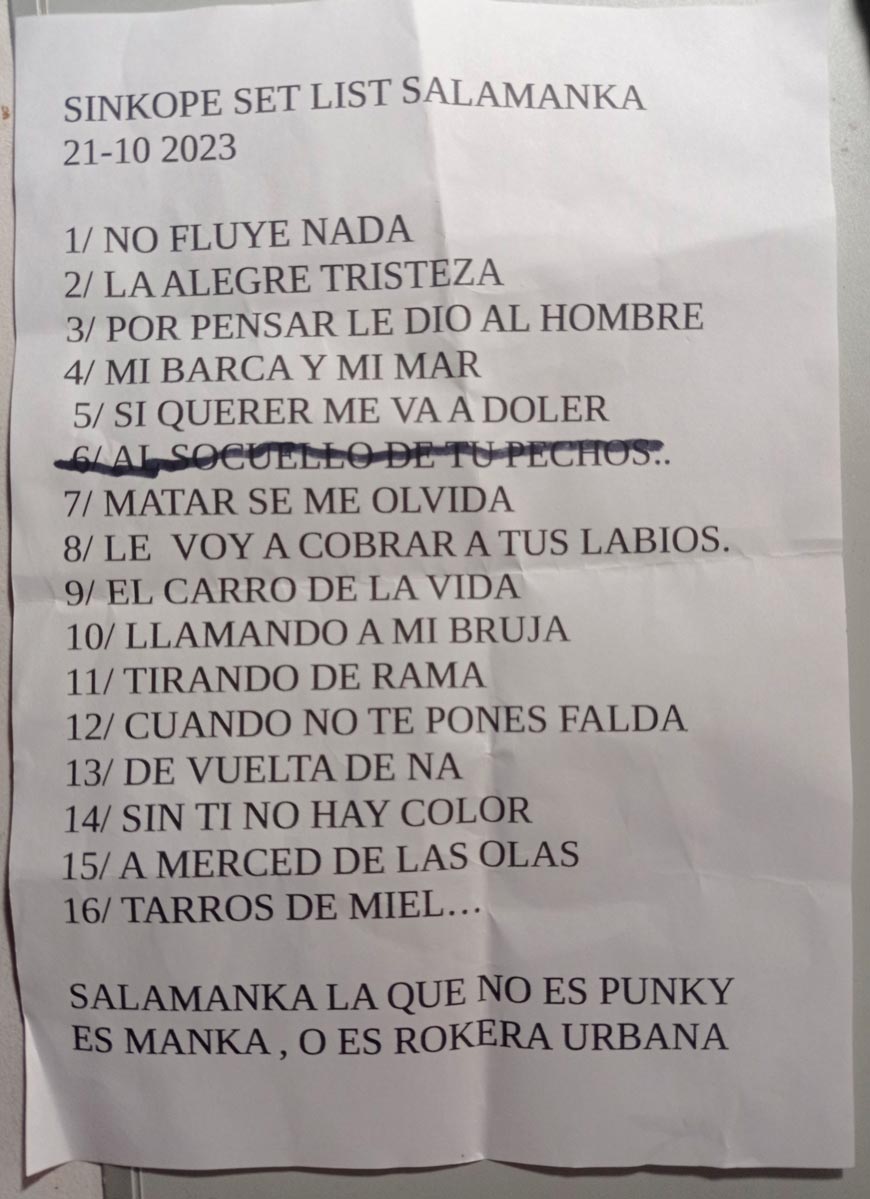 SINKOPE SET LIST SALAMANKA
21-10 2023
1/ NO FLUYE NADA
2/ LA ALEGRE TRISTEZA
3/ POR PENSAR LE DIO AL HOMBRE
4/ MI BARCA Y MI MAR
5/ SI QUERER ME VA A DOLER
6/ AL SOCUELLO DE TU PECHOS..
7/ MATAR SE ME OLVIDA
8/ LE VOY A COBRAR A TUS LABIOS.
9/ EL CARRO DE LA VIDA
10/ LLAMANDO A MI BRUJA
11/ TIRANDO DE RAMA
12/ CUANDO NO TE PONES FALDA
13/ DE VUELTA DE NA
14/ SIN TI NO HAY COLOR
15/ A MERCED DE LAS OLAS
16/ TARROS DE MIEL...
SALAMANKA LA QUE NO ES PUNKY
ES MANKA , O ES ROKERA URBANA